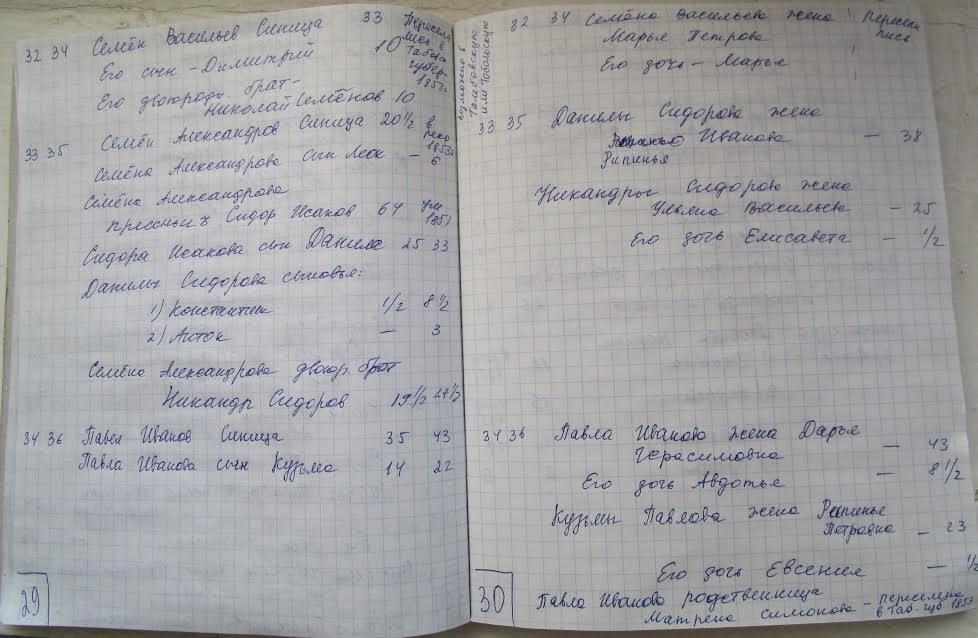 32 34 Семён Васильев Синица 33 Пересели
лись в
Табол
губер.
1853г
Его сын - Димитрий 10
Его двоюродн. брат -
Николай Семёнов 10
33 35 Семён Александров Синица 20 1/2 в
1853г
Семёна Александрова сын Иаок — 6
Семёна Александрова
Сидор Исаков 64 ум
1851
Сидора Исакова сын Данила 25 33
Данилы Сидорова сыновья:
1) Константин 1/2 8 1/2
2) Антон — 3
Семёна Александрова двоюр. брат
Никандр Сидоров 19 1/2 27 1/2
34 36 Павел Иванов Синица 35 43
Павла Иванова сын Кузьма 14 22
29
возможно в
Тамбовскую
или Тобольскую
32 34 Семёна Васильева жена Пересели
лись
Марья Петрова
Его дочь - Марья
33 35 Данилы Сидорова жена
Иванова — 38
Рипинья
Никандры Сидорова жена
Ульяна Васильева — 25
Его дочь Елисавета — 1/2
34 36 Павла Иванова жена Дарья
Герасимовна — 43
Его дочь Авдотья — 8 1/2
Кузьмы Павлова жена Рипинья
Петровна — 23
Его дочь Евсения — 1/2
30
Павла Иванова родственница
Матрена Симонова - переселена
в Таб. губ 1853